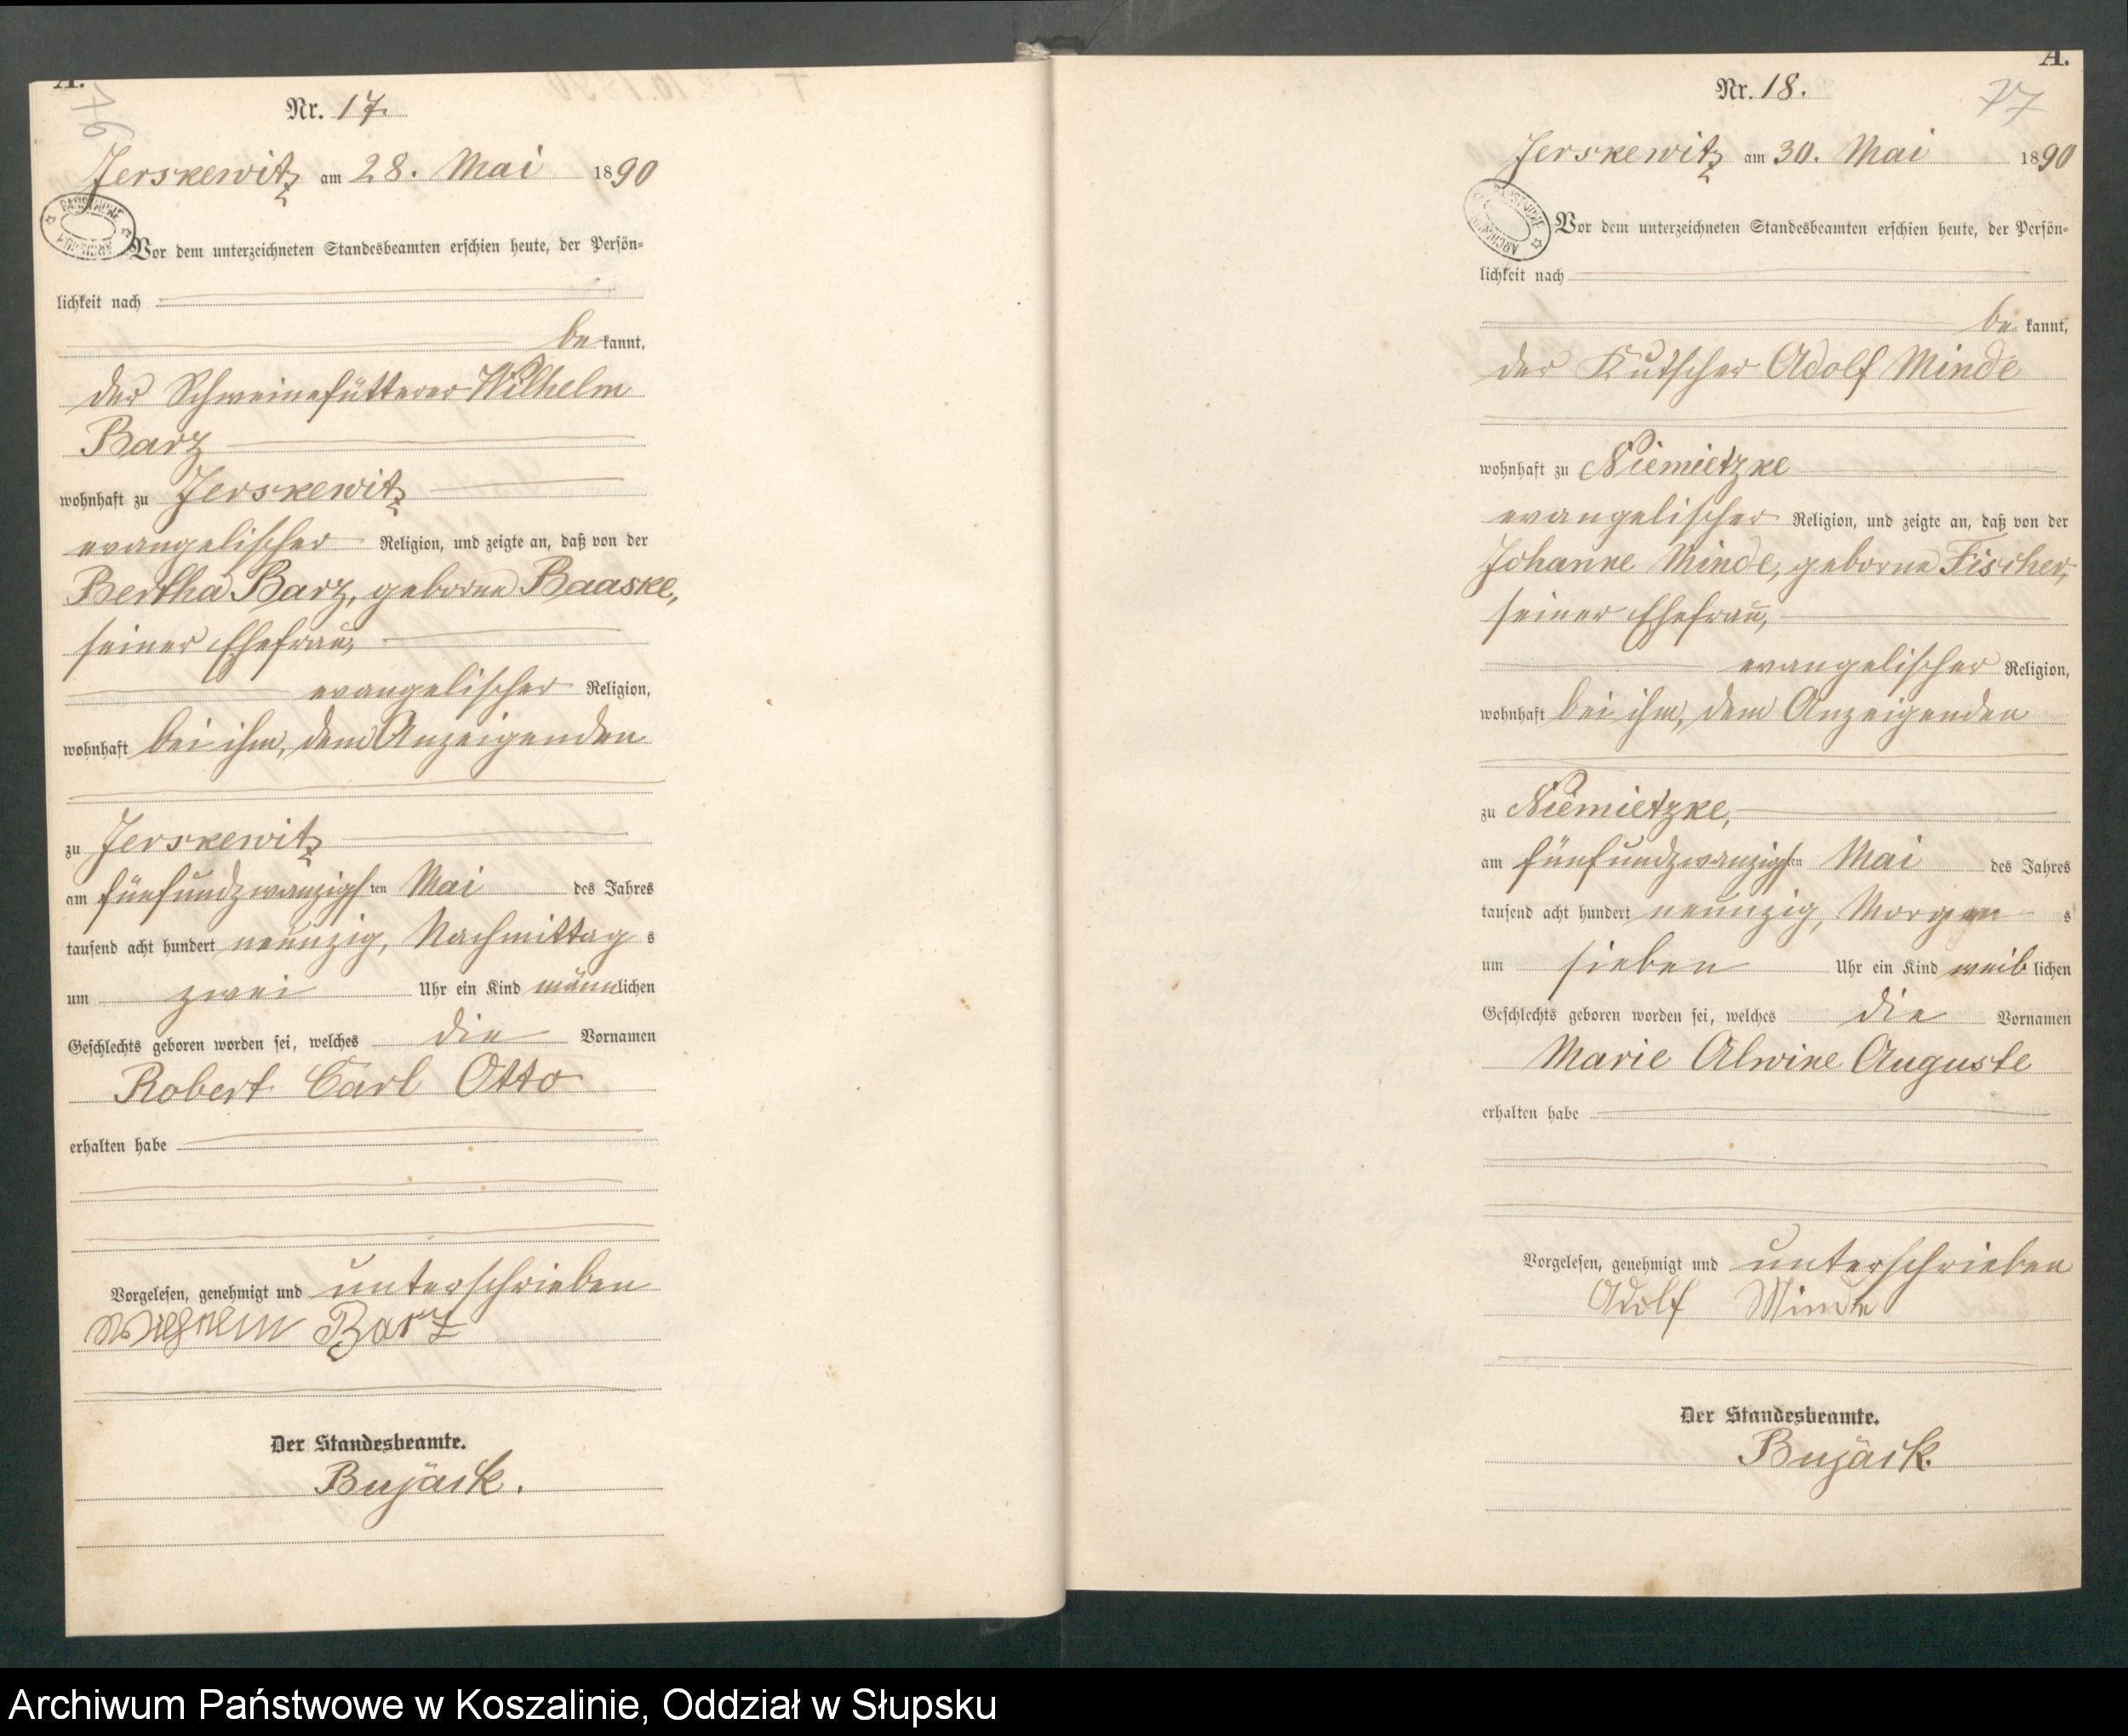 A.
76
Nr. 17.
Jerskewitz am 28. Mai 1890
Vor dem unterzeichneten Standesbeamten erschien heute, der Persön-
lichkeit nach
be kannt,
der Schweinefütterer Wilhelm
Barz
wohnhaft zu Jerskewitz
evangelischer Religion, und zeigte an, daß von der
Bertha Barz, geborne Baaske,
seiner Ehefrau,
evangelischer Religion,
wohnhaft bei ihm, dem Anzeigenden
zu Jerskewitz
am fünfundzwanzigsten Mai des Jahres
tausend acht hundert neunzig, Nachmittag s
um zwei Uhr ein Kind männlichen
Geschlechts geboren worden sei, welches die Vornamen
Robert Carl Otto
erhalten habe
Vorgelesen, genehmigt und unterschrieben
Wilhelm Barz
Der Standesbeamte.
Bujack.
A.
77
Nr. 18.
Jerskewitz am 30. Mai 1890
Vor dem unterzeichneten Standesbeamten erschien heute, der Persön-
lichkeit nach
be kannt,
der Kutscher Adolf Minde
wohnhaft zu Niemietzke
evangelischer Religion, und zeigte an, daß von der
Johanne Minde, geborne Fischer,
seiner Ehefrau,
evangelischer Religion,
wohnhaft bei ihm, dem Anzeigenden
zu Niemietzke,
am fünfundzwanzigsten Mai des Jahres
tausend acht hundert neunzig, Morgen s
um sieben Uhr ein Kind weiblichen
Geschlechts geboren worden sei, welches die Vornamen
Marie Alwine Auguste
erhalten habe
Vorgelesen, genehmigt und unterschrieben
Adolf Minde
Der Standesbeamte.
Bujack.
Archiwum Państwowe w Koszalinie, Oddział w Słupsku